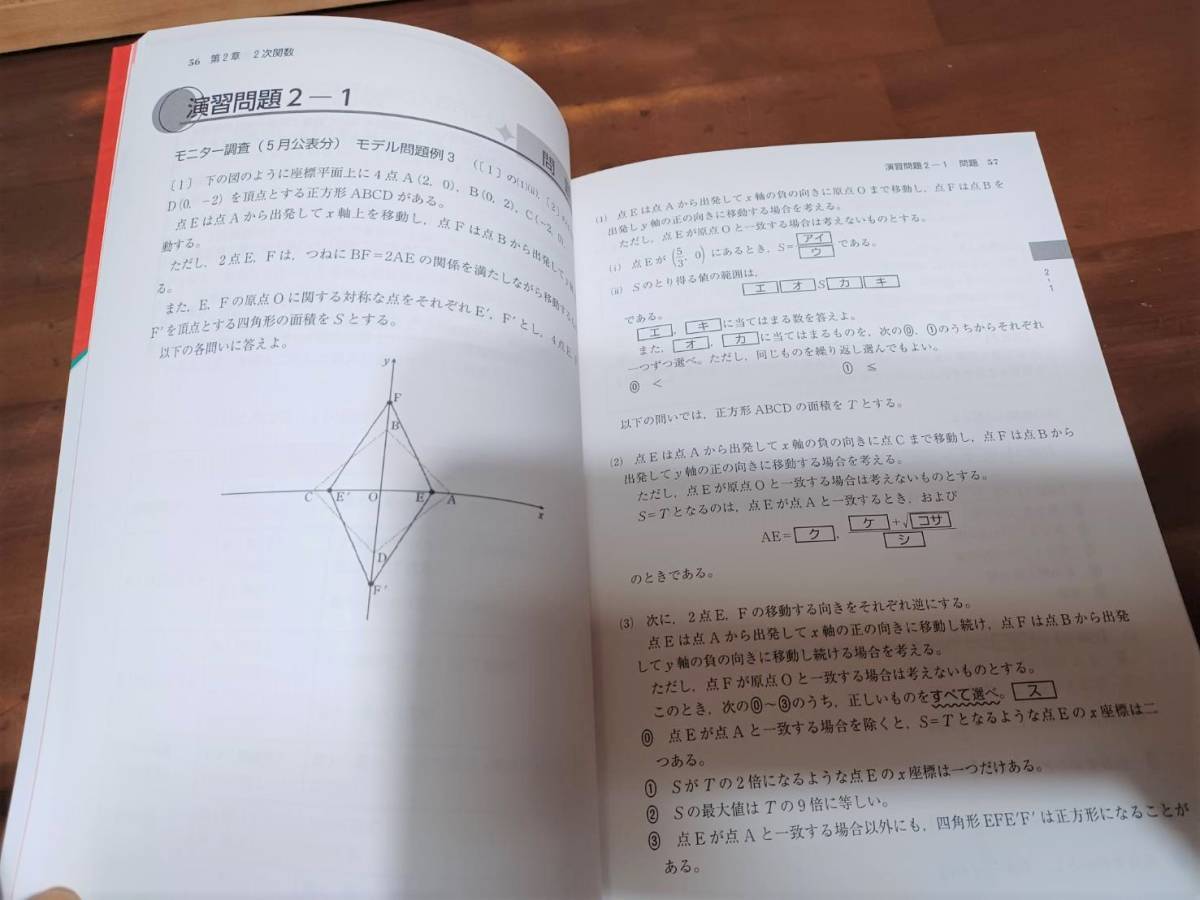 56 第2章 2次関数
演習問題2－1
問
モニター調査（5月公表分） モデル問題例3 （〔1〕の(1)(ii)，〔2〕の
〔1〕 下の図のように座標平面上に4点A(2，0)，B(0，2)，C(−2，0)
D(0，−2)を頂点とする正方形ABCDがある。
点Eは点Aから出発してx軸上を移動し，点Fは点Bから出発して
動する。
ただし，2点E，Fは，つねにBF=2AEの関係を満たしながら移動する
る。
また，E，Fの原点Oに関する対称な点をそれぞれE′，F′とし，4点E，
F′を頂点とする四角形の面積をSとする。
以下の各問いに答えよ。
y
F
B
C E′ O E A
x
D
F′
演習問題2－1 問題 57
(1) 点Eは点Aから出発してx軸の負の向きに原点Oまで移動し，点Fは点Bを
出発しy軸の正の向きに移動する場合を考える。
ただし，点Eが原点Oと一致する場合は考えないものとする。
(i) 点Eが(5/3，0)にあるとき，S=アイ/ウである。
(ii) Sのとり得る値の範囲は，
エ オ S カ キ
である。
エ，キに当てはまる数を答えよ。
また，オ，カに当てはまるものを，次の⓪，①のうちからそれぞれ
一つずつ選べ。ただし，同じものを繰り返し選んでもよい。
⓪ < ① ≦
以下の問いでは，正方形ABCDの面積をTとする。
(2) 点Eは点Aから出発してx軸の負の向きに点Cまで移動し，点Fは点Bから
出発してy軸の正の向きに移動する場合を考える。
ただし，点Eが原点Oと一致する場合は考えないものとする。
S=Tとなるのは，点Eが点Aと一致するとき，および
AE=ク，ケ+√コサ/シ
のときである。
(3) 次に，2点E，Fの移動する向きをそれぞれ逆にする。
点Eは点Aから出発してx軸の正の向きに移動し続け，点Fは点Bから出発
してy軸の負の向きに移動し続ける場合を考える。
ただし，点Fが原点Oと一致する場合は考えないものとする。
このとき，次の⓪～③のうち，正しいものをすべて選べ。ス
⓪ 点Eが点Aと一致する場合を除くと，S=Tとなるような点Eのx座標は二
つある。
① SがTの2倍になるような点Eのx座標は一つだけある。
② Sの最大値はTの9倍に等しい。
③ 点Eが点Aと一致する場合以外にも，四角形EFE′F′は正方形になることが
ある。
2
-
1